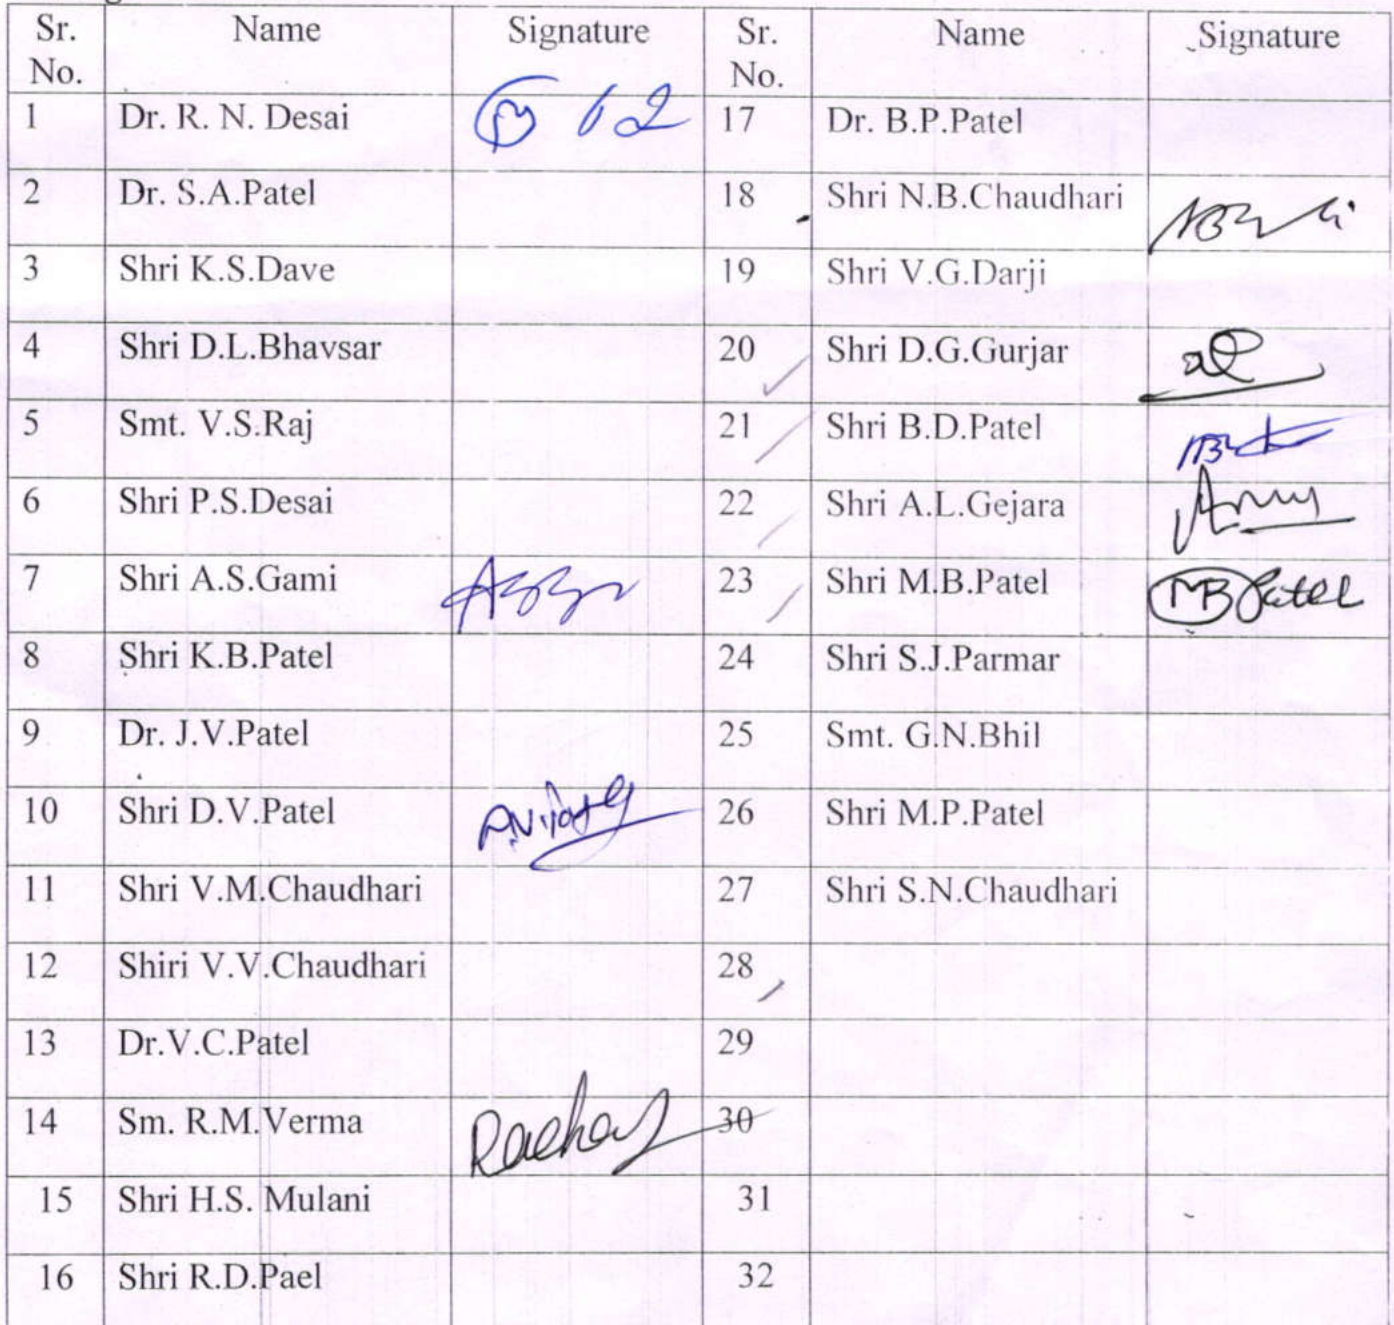 Sr. No. Name Signature Sr. No. Name Signature
1 Dr. R. N. Desai 17 Dr. B.P.Patel
2 Dr. S.A.Patel 18 Shri N.B.Chaudhari
3 Shri K.S.Dave 19 Shri V.G.Darji
4 Shri D.L.Bhavsar 20 Shri D.G.Gurjar
5 Smt. V.S.Raj 21 Shri B.D.Patel
6 Shri P.S.Desai 22 Shri A.L.Gejara
7 Shri A.S.Gami 23 Shri M.B.Patel MBPatel
8 Shri K.B.Patel 24 Shri S.J.Parmar
9 Dr. J.V.Patel 25 Smt. G.N.Bhil
10 Shri D.V.Patel 26 Shri M.P.Patel
11 Shri V.M.Chaudhari 27 Shri S.N.Chaudhari
12 Shiri V.V.Chaudhari 28
13 Dr.V.C.Patel 29
14 Sm. R.M.Verma 30
15 Shri H.S. Mulani 31
16 Shri R.D.Pael 32